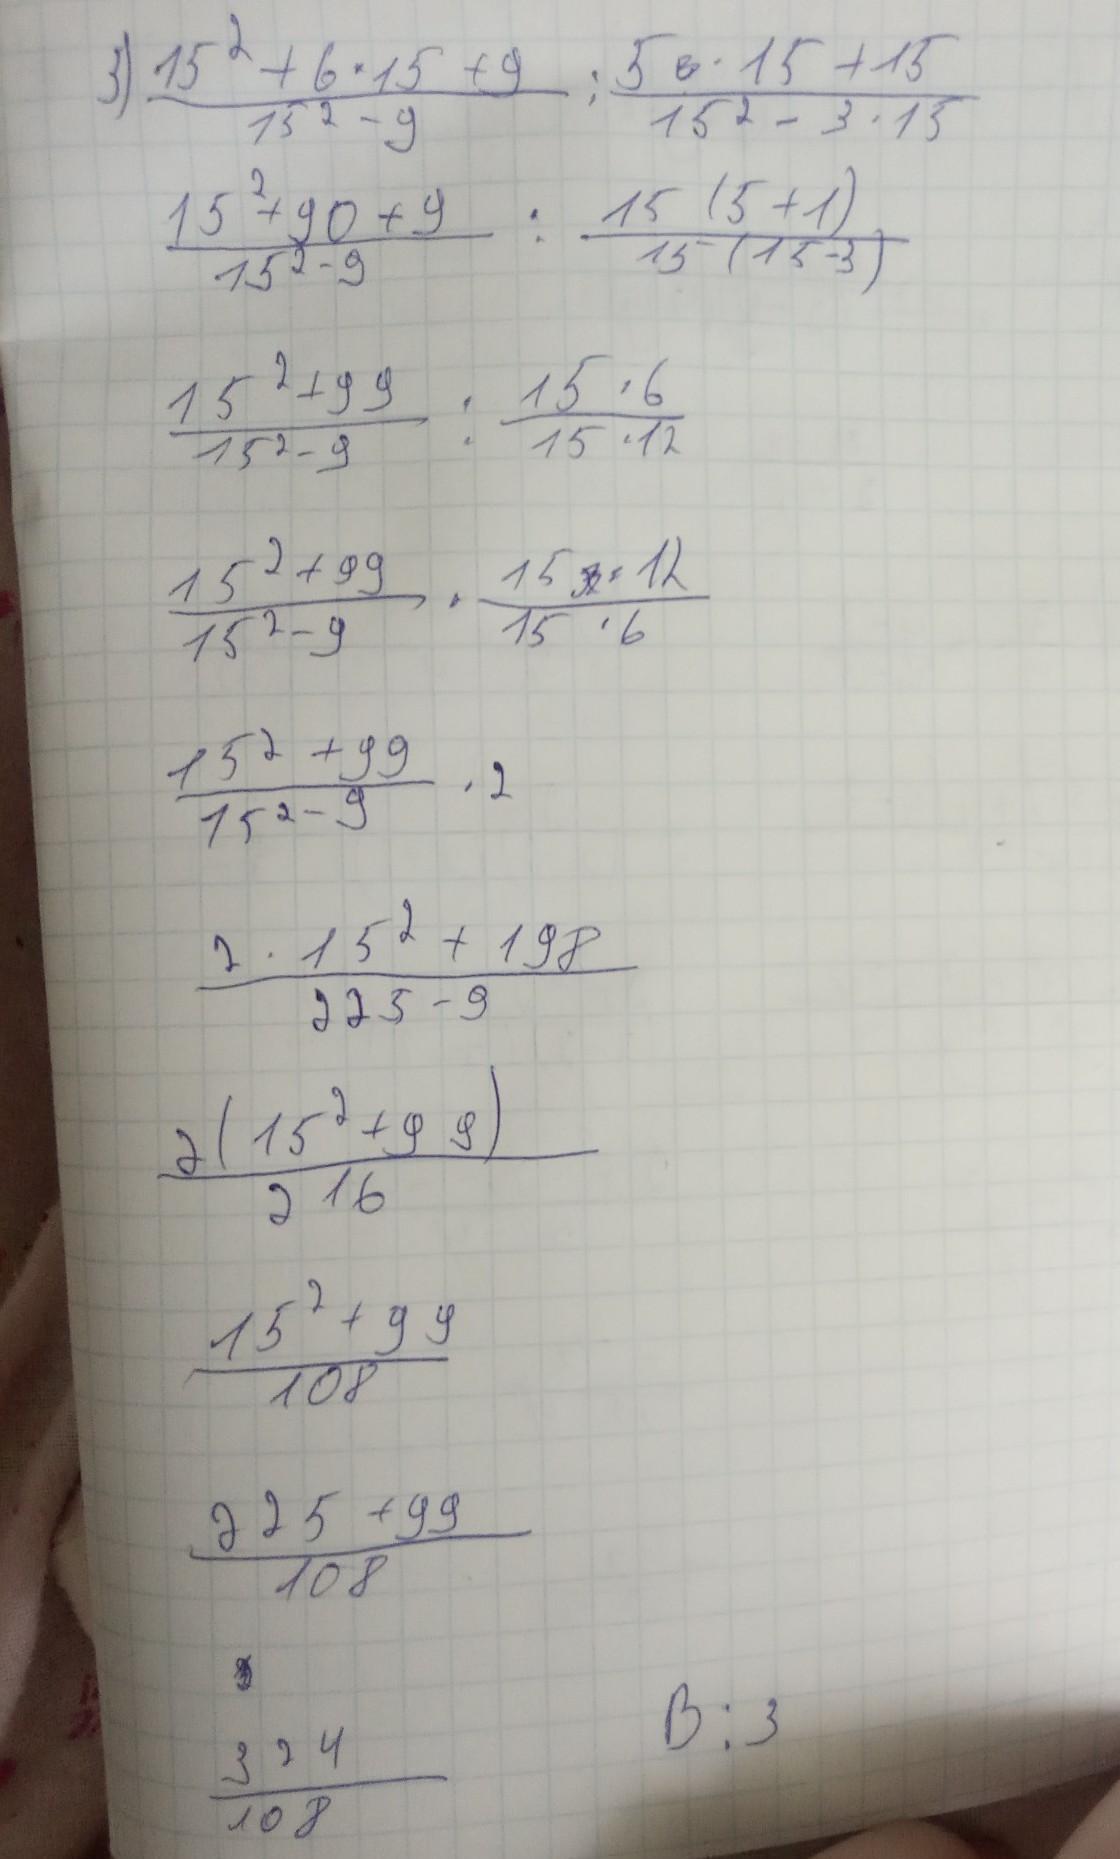 3) (15² + 6·15 + 9)/(15² - 9) : (5·15 + 15)/(15² - 3·15)
(15² + 90 + 9)/(15² - 9) : 15(5+1)/15(15-3)
(15² + 99)/(15² - 9) : (15·6)/(15·12)
(15² + 99)/(15² - 9) · (15·12)/(15·6)
(15² + 99)/(15² - 9) · 2
(2·15² + 198)/(225 - 9)
2(15² + 99)/216
(15² + 99)/108
(225 + 99)/108
324/108 B:3